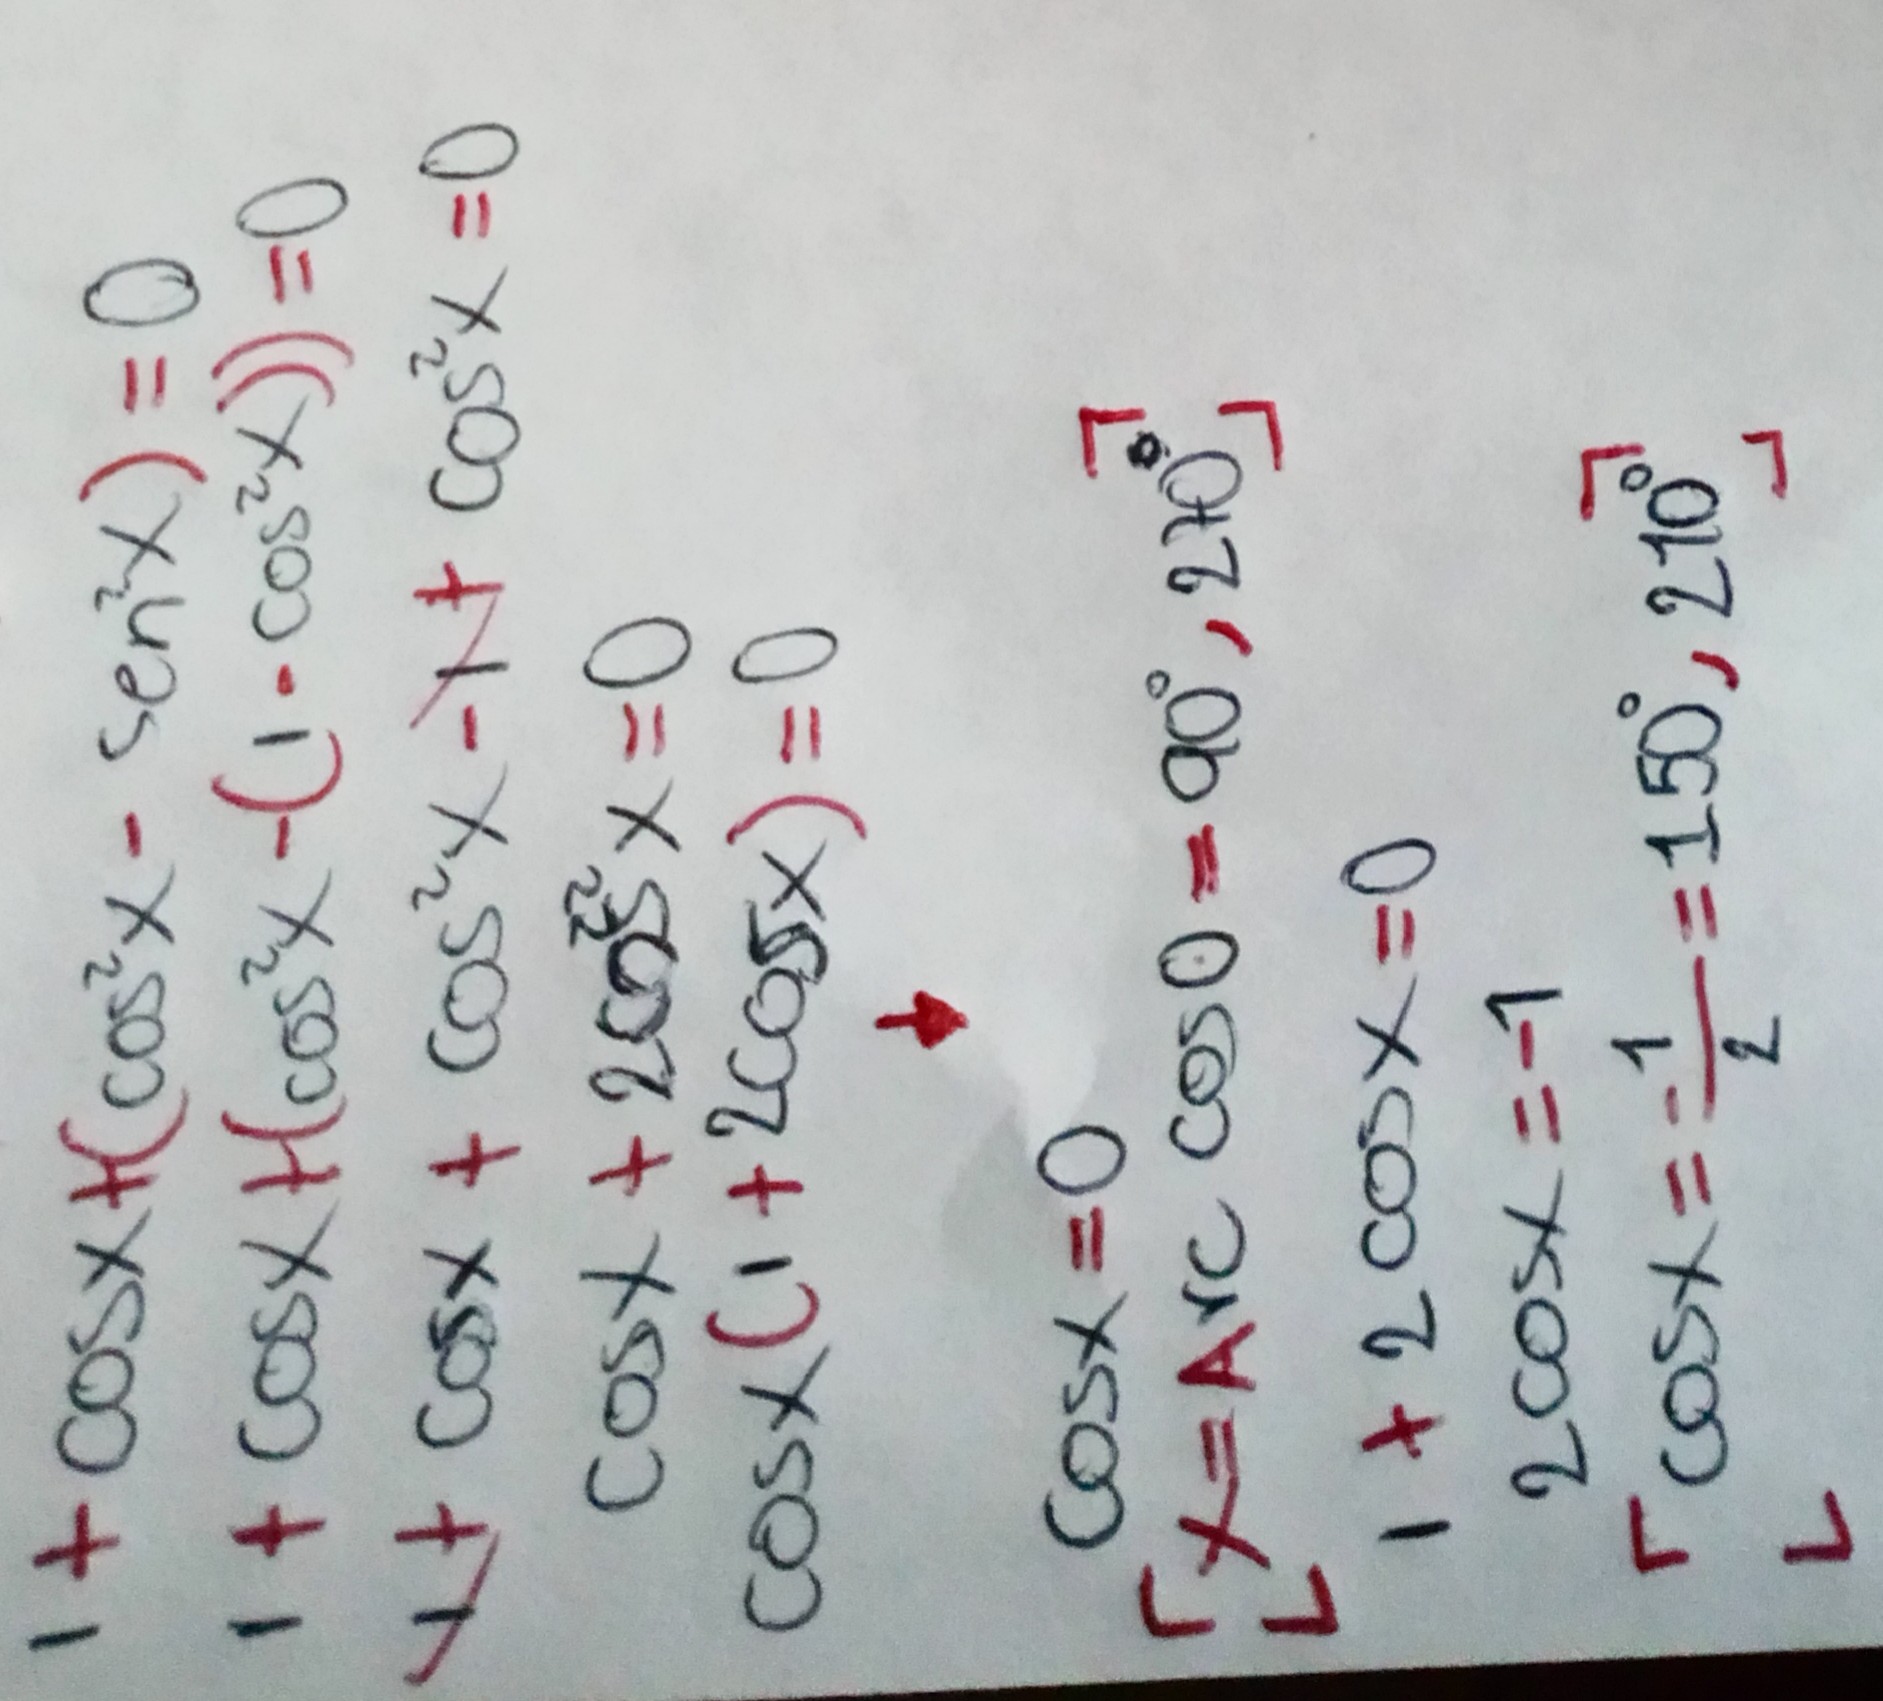 1 + cosx + (cos²x - sen²x) = 0
1 + cosx + (cos²x - (1 - cos²x)) = 0
1 + cosx + cos²x - 1 + cos²x = 0
cosx + 2cos²x = 0
cosx (1 + 2cosx) = 0
↓
cosx = 0
x = Arc cos0 = 90°, 270°
1 + 2cosx = 0
2cosx = -1
cosx = -1/2 = 150°, 210°